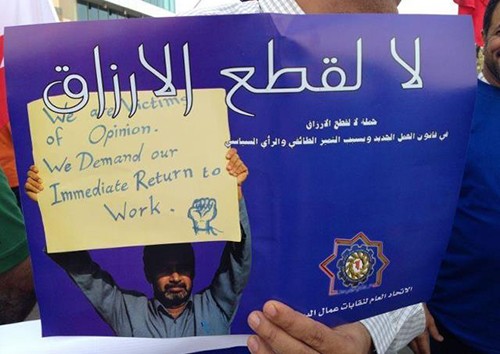 لا لقطع الارزاق
حملة لا لقطع الارزاق
في قانون العمل الجديد وبسبب التمييز الطائفي والرأي السياسي
We are Victims
of Opinion.
We Demand our
Immediate Return to
Work.
الاتحاد العام لنقابات عمال